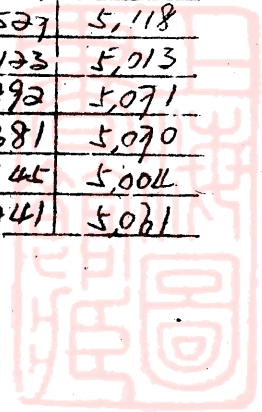 527 5,118
123 5,013
92 5,071
381 5,070
45 5,004
41 5,061